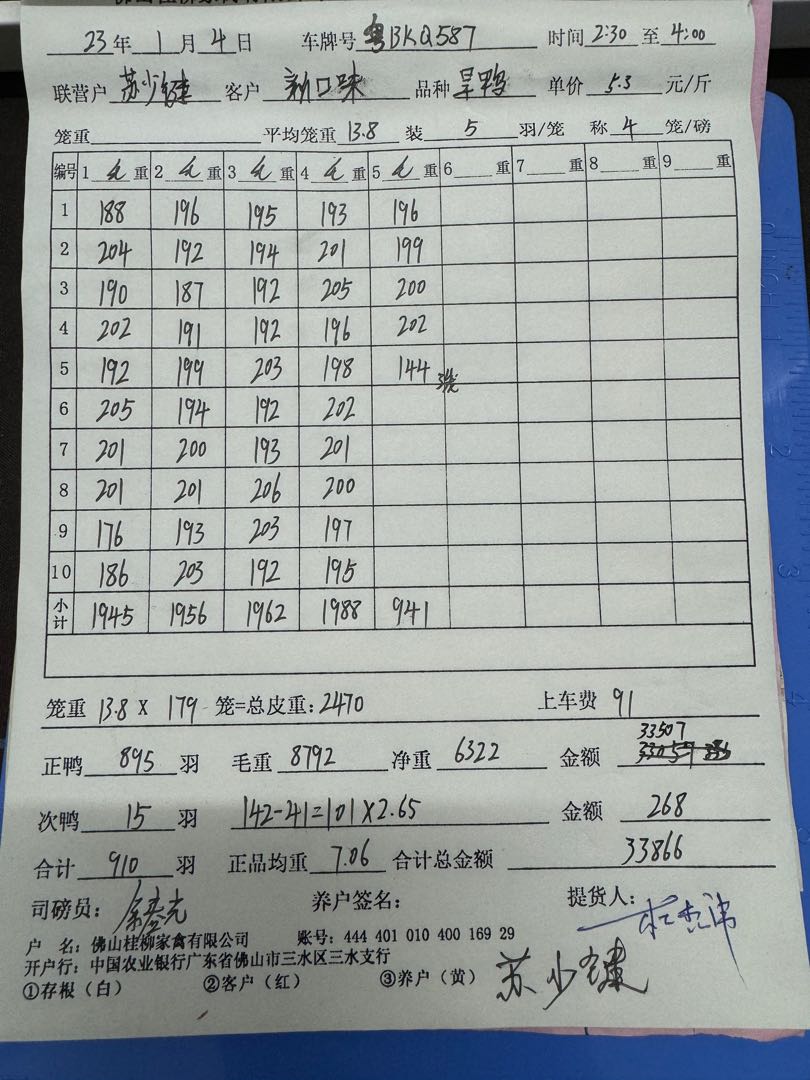 23年 1月4日 车牌号 粤BKQ587 时间 2:30 至 4:00
联营户 苏少键 客户 新口味 品种 旱鸭 单价 5.3 元/斤
笼重 平均笼重 13.8 装 5 羽/笼 称 4 笼/磅
编号 1 毛 重 2 毛 重 3 毛 重 4 毛 重 5 毛 重 6 重 7 重 8 重 9 重
1 188 196 195 193 196
2 204 192 194 201 199
3 190 187 192 205 200
4 202 191 192 196 202
5 192 199 203 198 144 3笼
6 205 194 192 202
7 201 200 193 201
8 201 201 206 200
9 176 193 203 197
10 186 203 192 195
小计 1945 1956 1962 1988 941
笼重 13.8 X 179 笼=总皮重: 2470 上车费 91
正鸭 895 羽 毛重 8792 净重 6322 金额 33507
次鸭 15 羽 142-41=101X2.65 金额 268
合计 910 羽 正品均重 7.06 合计总金额 33866
司磅员: 养户签名: 提货人:
户 名: 佛山桂柳家禽有限公司 账号: 444 401 010 400 169 29
开户行: 中国农业银行广东省佛山市三水区三水支行
①存根（白） ②客户（红） ③养户（黄） 苏少键